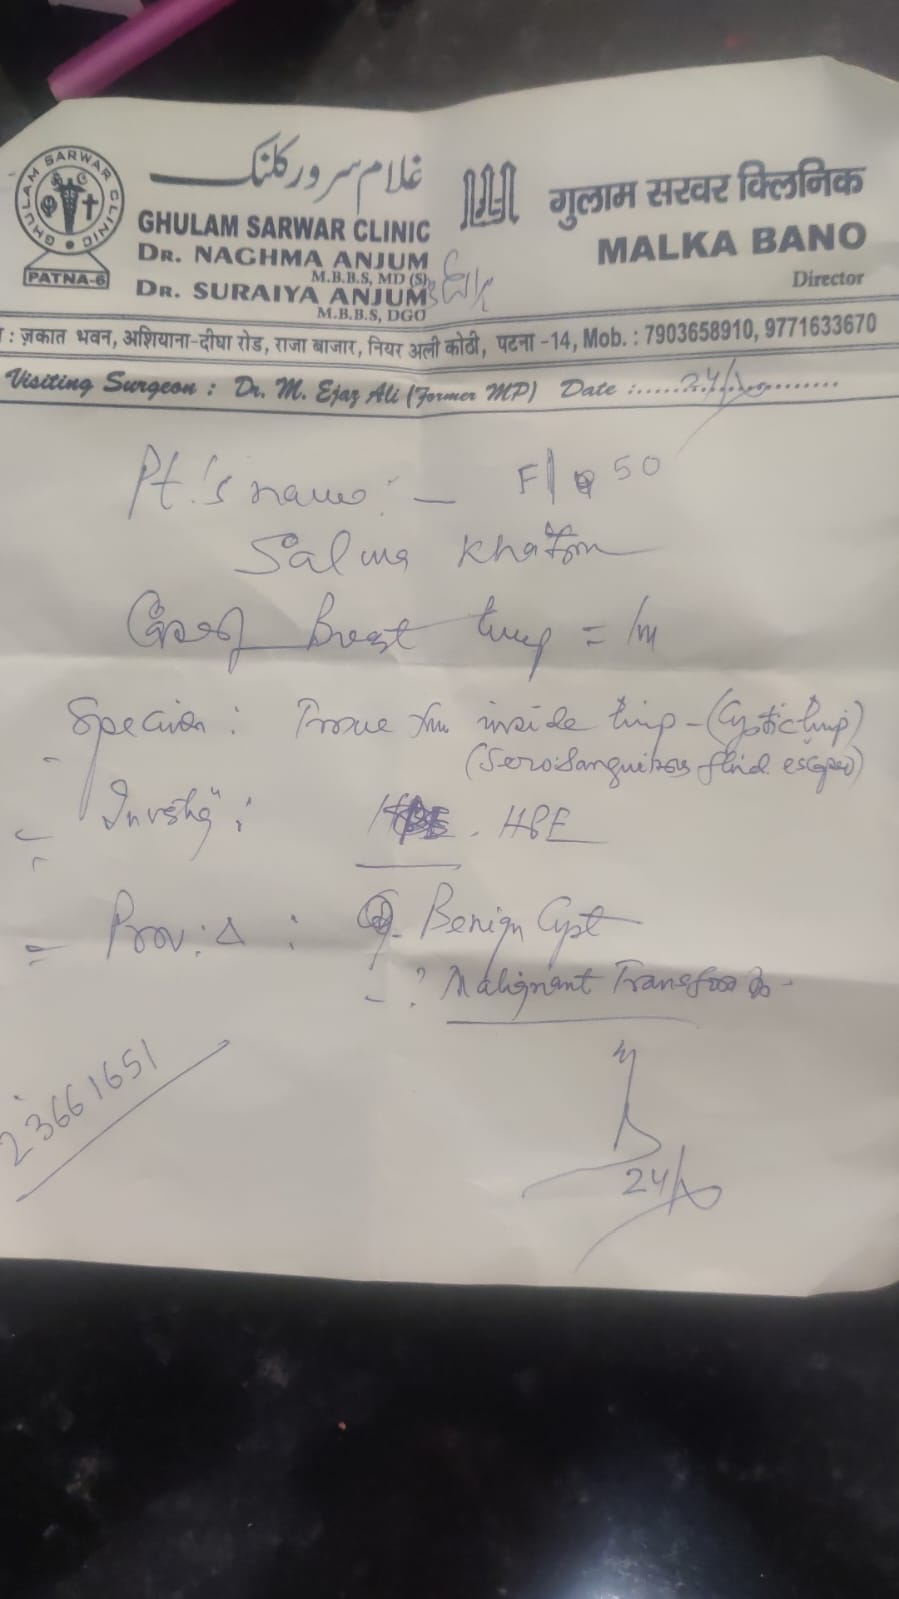 GHULAM SARWAR CLINIC
PATNA-6
غلام سرور کلنک
गुलाम सरवर क्लिनिक
GHULAM SARWAR CLINIC
DR. NAGHMA ANJUM
M.B.B.S, MD (S)
DR. SURAIYA ANJUM
M.B.B.S, DGO
MALKA BANO
Director
: ज़कात भवन, अशियाना-दीघा रोड, राजा बाजार, नियर अली कोठी, पटना -14, Mob. : 7903658910, 9771633670
Visiting Surgeon : Dr. M. Ejaz Ali (Former MP) Date :.....24/.........
Pt.'s name:- F/ 50
Salma Khatoon
Breast lump = 1m
Specimen : Tissue from inside lump - (Cystic lump)
(Serosanguinous fluid escaped)
Investigⁿ : HPE
Prov: Δ : Benign Cyst
- ? Malignant
23661651
24/